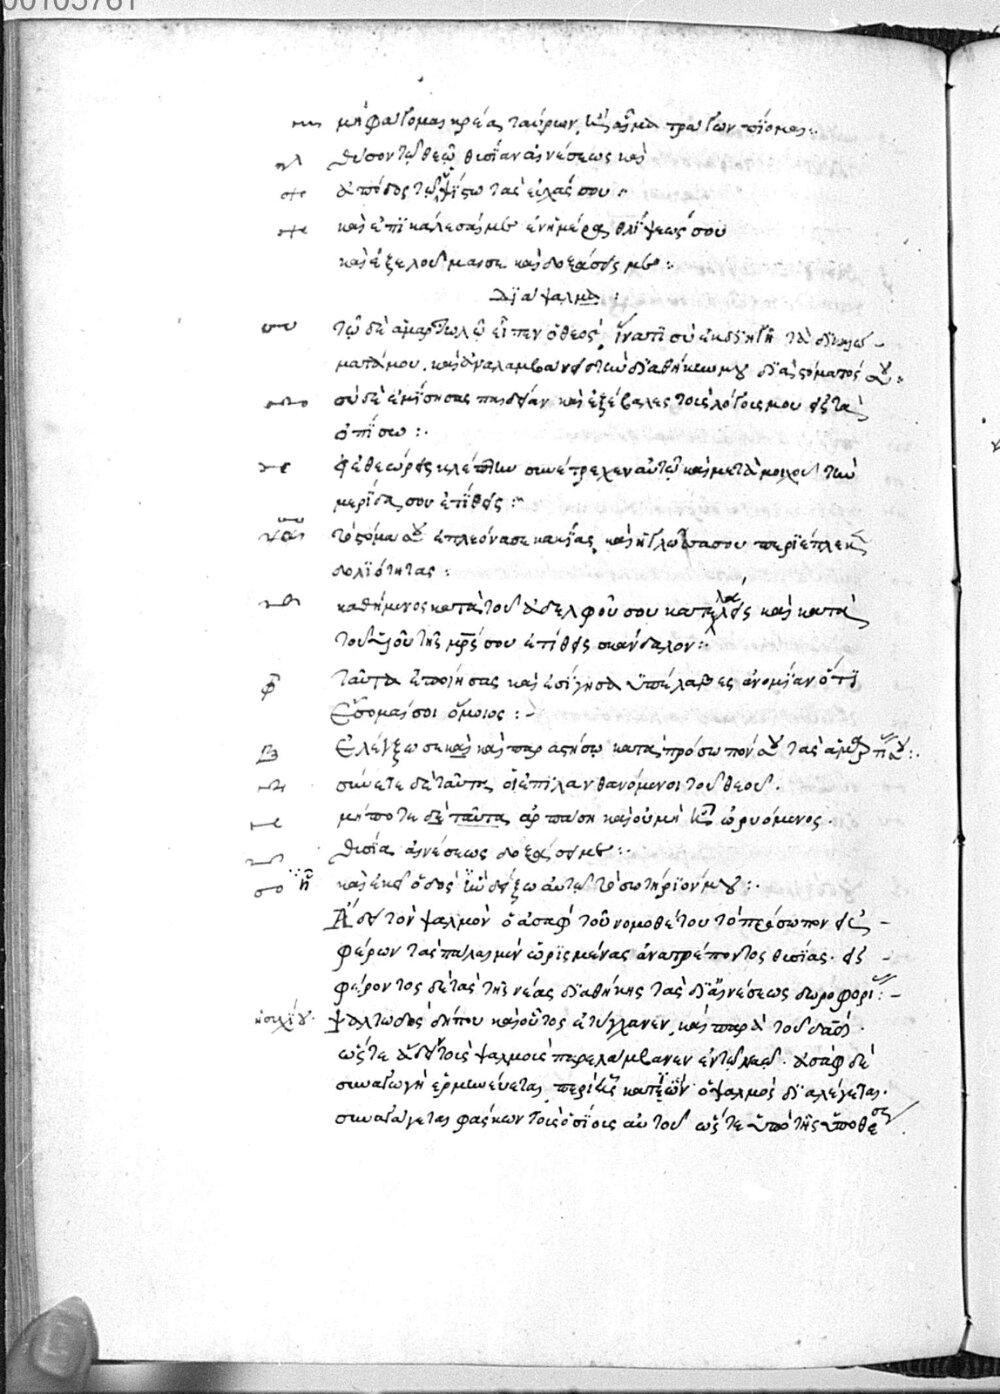 00105761
μὴ φάγομαι κρέας ταύρων, ἢ αἷμα τράγων πίομαι :
θῦσον τῷ θεῷ θυσίαν αἰνέσεως καὶ
ἀπόδος τῷ ὑψίστω τὰς εὐχάς σου :
καὶ ἐπικάλεσαί με ἐν ἡμέρα θλίψεώς σου
καὶ ἐξελοῦμαί σε καὶ δοξάσεις με :
Διάψαλμα :
τῷ δὲ ἁμαρτωλῷ εἶπεν ὁ θεός, ἵνα τί σὺ ἐκδιηγῆ τὰ δικαιώ-
ματά μου. καὶ ἀναλαμβάνεις τὴν διαθήκην μου διὰ στόματός σου :
σὺ δὲ ἐμίσησας παιδείαν καὶ ἐξέβαλες τοὺς λόγους μου εἰς τὰ
ὀπίσω :
εἰ ἐθεώρεις κλέπτην συνέτρεχες αὐτῷ καὶ μετὰ μοιχοῦ τὴν
μερίδα σου ἐτίθεις :
τὸ στόμα σου ἐπλεόνασε κακίας, καὶ ἡ γλῶσσά σου περιέπλεκε
δολιότητας :
καθήμενος κατὰ τοῦ ἀδελφοῦ σου κατελάλεις καὶ κατὰ
τοῦ υἱοῦ τῆς μρς σου ἐτίθεις σκάνδαλον :
ταῦτα ἐποίησας καὶ ἐσίγησα ὑπέλαβες ἀνομίαν ὅτι
ἔσομαί σοι ὅμοιος :
ἐλέγξω σε καὶ παραστήσω κατὰ πρόσωπόν σου τὰς ἁμαρτίας σου :
σύνετε δὲ ταῦτα οἱ ἐπιλανθανόμενοι τοῦ θεοῦ.
μήποτε δὲ ταῦτα ἁρπάση καὶ οὐ μὴ ἦ ὁ ῥυόμενος.
θυσία αἰνέσεως δοξάσει με :
καὶ ἐκεῖ ὁδὸς ᾗ δείξω αὐτῷ τὸ σωτήριόν μου :
Ἄδει τὸν ψαλμὸν ὁ ἀσὰφ τοῦ νομοθέτου τὸ πρόσωπον εἰσ-
φέρων τὰς παλαιὰς μὲν ὡρισμένας ἀνατρέποντος θυσίας. εἰσ-
φέροντος δὲ τὰς τῆς νέας διαθήκης τὰς δι' αἰνέσεως δωροφορί :-
ἡσυχίου. ψαλτωδὸς δήπου καὶ οὗτος ἐτύγχανεν, καὶ παρὰ τοῦ δαδ.
ὥστε ἄδειν τοῖς ψαλμοῖς παρελάμβανεν ἐν τῷ ναῷ. ἀσὰφ δὲ
συναγωγὴ ἑρμηνεύεται, περὶ ὁ ψαλμὸς διαλέγεται.
συνάγεται φάσκων τοὺς ὁσίους αὐτοῦ ὥστε ὑπὸ τῆς ὑποθέσε